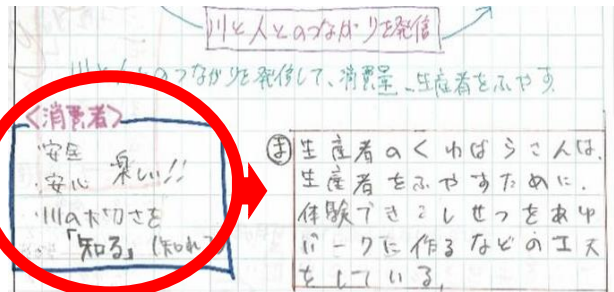 川と人とのつながりを発信
川と人とのつながりを発信して、消費量、生産者をふやす
〈消費者〉
・安全
・安心 楽しい!!
・川の大切さを
「知る」(知れる)
ま 生産者のくわばらさんは、
生産者をふやすために、
体験できるしせつをあゆ
パークに作るなどの工夫
をしている。